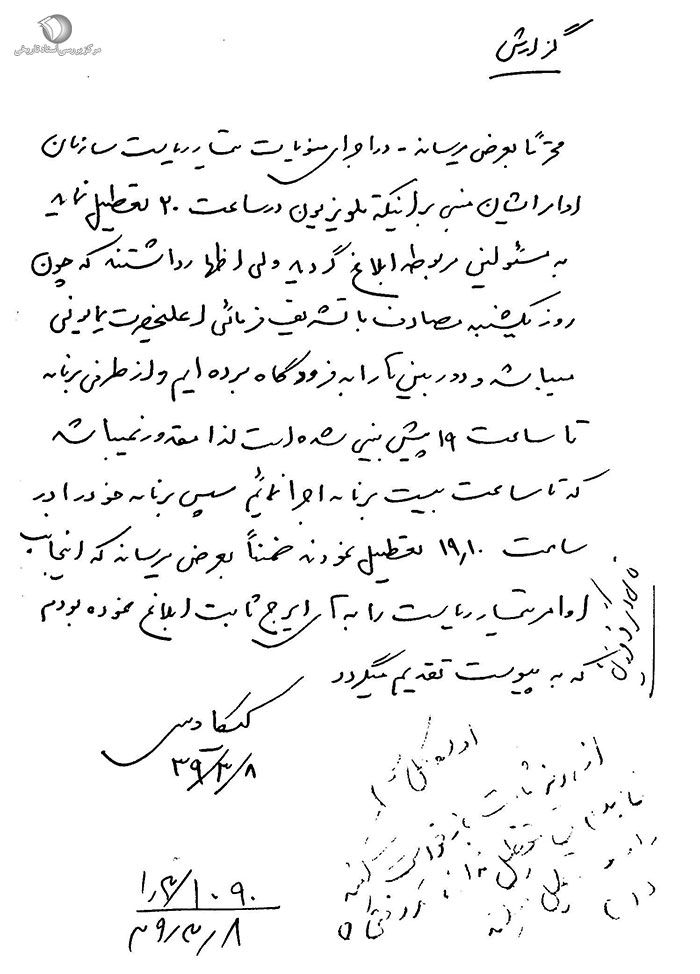 مرکز بررسی اسناد تاریخی
گزارش
محترماً بعرض میرساند - در اجرای منویات تیمسار ریاست سازمان
اداراتشان مبنی بر اینکه تلویزیون در ساعت ۲۰ تعطیل نماید
به مسئولین مربوطه ابلاغ گردید ولی اظهار داشتند که چون
روز یکشنبه مصادف با تشریف فرمائی اعلیحضرت همایونی
میباشد و دوربین ها را به فرودگاه برده ایم و از طرفی برنامه
تا ساعت ۱۹ پیش بینی شده است لذا مقدور نمیباشد
که تا ساعت بیست برنامه اجرا نمائیم سپس برنامه خود را در
ساعت ۱۹٫۱۰ تعطیل نمودند ضمناً بعرض میرساند که اینجانب
اوامر تیمسار ریاست را به آقای ایرج ثابت ابلاغ نموده بودم
که به پیوست تقدیم میگردد
کیکاوسی
۳۹/۳/۸
اداره کل
از پرویز ثابت بازخواست کنند
۱۰۹۰
۳۹/۳/۸